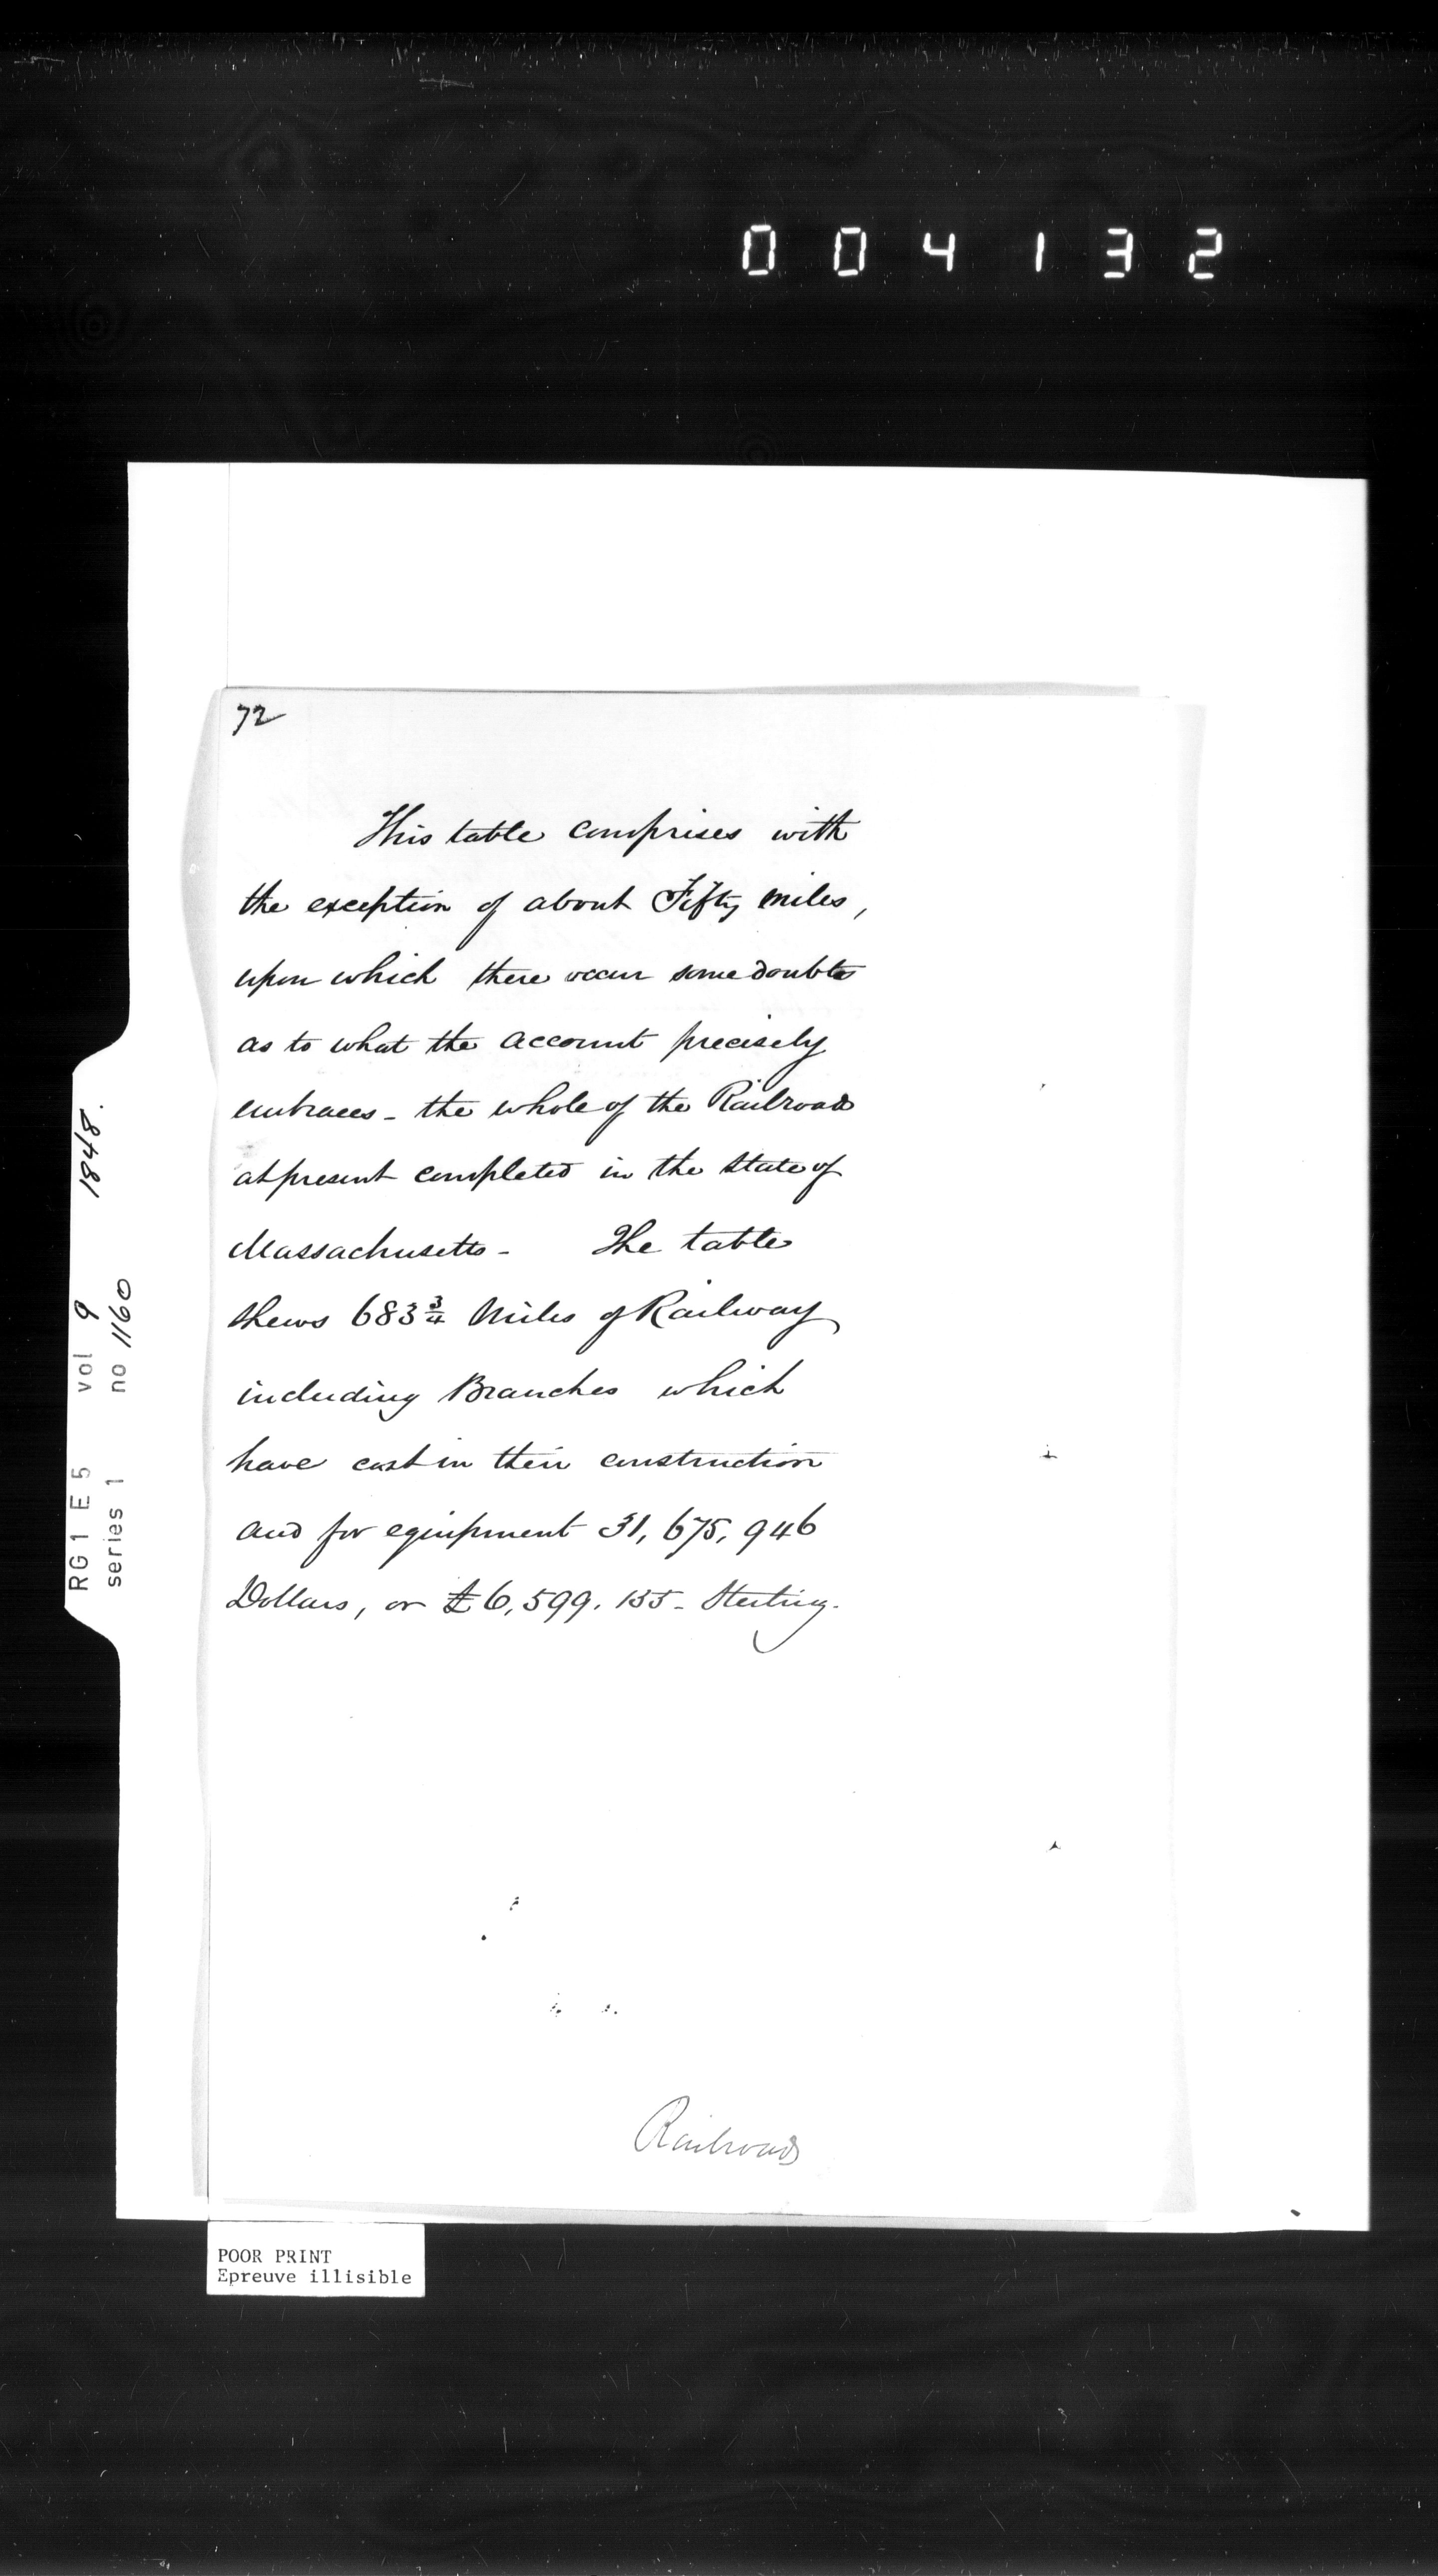 004132
72
This table comprises with
the exception of about Fifty miles,
upon which there occur some doubts
as to what the account precisely
embraces - the whole of the Railroads
at present completed in the State of
Massachusetts - The table
shews 683 3/4 Miles of Railway
including Branches which
have cost in their construction
and for equipment 31,675,946
Dollars, or £6,599.155 - Sterling.
Railroads
RG1 E5 vol 9 1848.
series 1 no 1160
POOR PRINT
Epreuve illisible